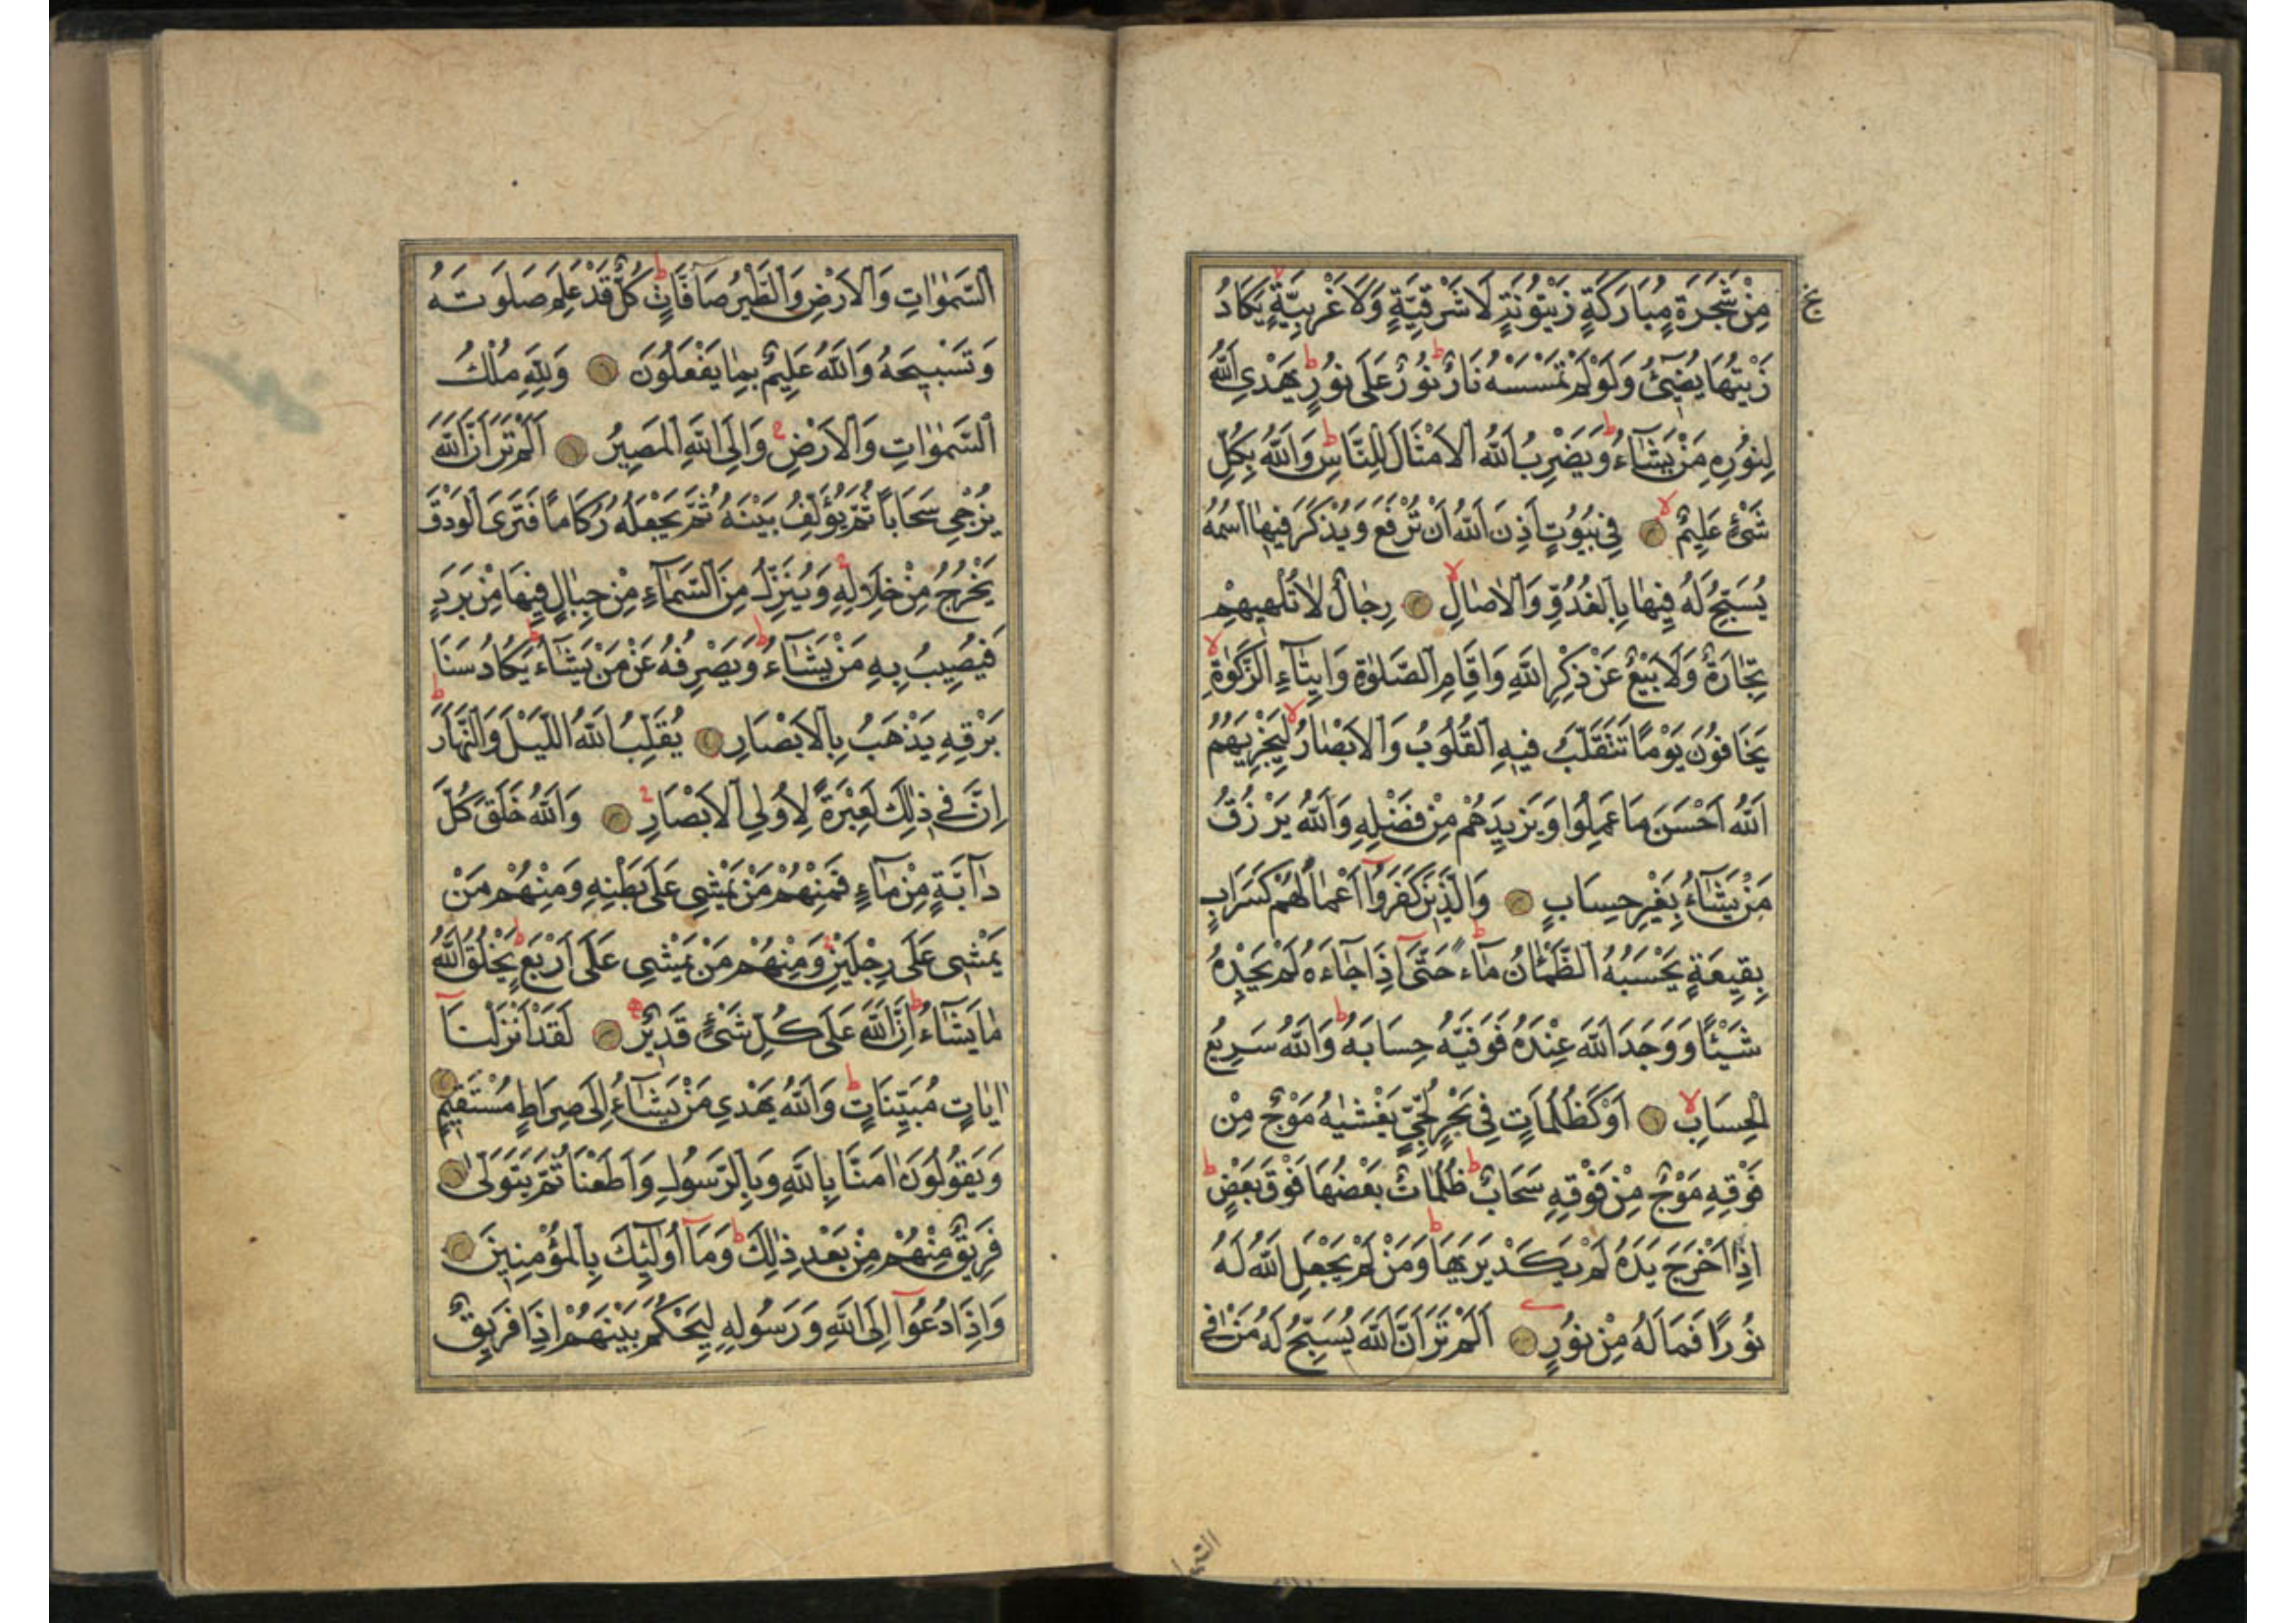 مِنْ شَجَرَةٍ مُبَارَكَةٍ زَيْتُونَةٍ لَا شَرْقِيَّةٍ وَلَا غَرْبِيَّةٍ يَكَادُ
زَيْتُهَا يُضِيءُ وَلَوْ لَمْ تَمْسَسْهُ نَارٌ نُورٌ عَلَى نُورٍ يَهْدِي اللَّهُ
لِنُورِهِ مَنْ يَشَاءُ وَيَضْرِبُ اللَّهُ الْأَمْثَالَ لِلنَّاسِ وَاللَّهُ بِكُلِّ
شَيْءٍ عَلِيمٌ فِي بُيُوتٍ أَذِنَ اللَّهُ أَنْ تُرْفَعَ وَيُذْكَرَ فِيهَا اسْمُهُ
يُسَبِّحُ لَهُ فِيهَا بِالْغُدُوِّ وَالْآصَالِ رِجَالٌ لَا تُلْهِيهِمْ
تِجَارَةٌ وَلَا بَيْعٌ عَنْ ذِكْرِ اللَّهِ وَإِقَامِ الصَّلٰوةِ وَإِيتَاءِ الزَّكٰوةِ
يَخَافُونَ يَوْمًا تَتَقَلَّبُ فِيهِ الْقُلُوبُ وَالْأَبْصَارُ لِيَجْزِيَهُمُ
اللَّهُ أَحْسَنَ مَا عَمِلُوا وَيَزِيدَهُمْ مِنْ فَضْلِهِ وَاللَّهُ يَرْزُقُ
مَنْ يَشَاءُ بِغَيْرِ حِسَابٍ وَالَّذِينَ كَفَرُوا أَعْمَالُهُمْ كَسَرَابٍ
بِقِيعَةٍ يَحْسَبُهُ الظَّمْآنُ مَاءً حَتَّى إِذَا جَاءَهُ لَمْ يَجِدْهُ
شَيْئًا وَوَجَدَ اللَّهَ عِنْدَهُ فَوَفّٰيهُ حِسَابَهُ وَاللَّهُ سَرِيعُ
الْحِسَابِ أَوْ كَظُلُمَاتٍ فِي بَحْرٍ لُجِّيٍّ يَغْشٰيهُ مَوْجٌ مِنْ
فَوْقِهِ مَوْجٌ مِنْ فَوْقِهِ سَحَابٌ ظُلُمَاتٌ بَعْضُهَا فَوْقَ بَعْضٍ
إِذَا أَخْرَجَ يَدَهُ لَمْ يَكَدْ يَرٰيهَا وَمَنْ لَمْ يَجْعَلِ اللَّهُ لَهُ
نُورًا فَمَا لَهُ مِنْ نُورٍ أَلَمْ تَرَ أَنَّ اللَّهَ يُسَبِّحُ لَهُ مَنْ فِي
السَّمٰوَاتِ وَالْأَرْضِ وَالطَّيْرُ صَافَّاتٍ كُلٌّ قَدْ عَلِمَ صَلَوتَهُ
وَتَسْبِيحَهُ وَاللَّهُ عَلِيمٌ بِمَا يَفْعَلُونَ وَلِلَّهِ مُلْكُ
السَّمٰوَاتِ وَالْأَرْضِ وَإِلَى اللَّهِ الْمَصِيرُ أَلَمْ تَرَ أَنَّ اللَّهَ
يُزْجِي سَحَابًا ثُمَّ يُؤَلِّفُ بَيْنَهُ ثُمَّ يَجْعَلُهُ رُكَامًا فَتَرَى الْوَدْقَ
يَخْرُجُ مِنْ خِلَالِهِ وَيُنَزِّلُ مِنَ السَّمَاءِ مِنْ جِبَالٍ فِيهَا مِنْ بَرَدٍ
فَيُصِيبُ بِهِ مَنْ يَشَاءُ وَيَصْرِفُهُ عَنْ مَنْ يَشَاءُ يَكَادُ سَنَا
بَرْقِهِ يَذْهَبُ بِالْأَبْصَارِ يُقَلِّبُ اللَّهُ اللَّيْلَ وَالنَّهَارَ
إِنَّ فِي ذٰلِكَ لَعِبْرَةً لِأُولِي الْأَبْصَارِ وَاللَّهُ خَلَقَ كُلَّ
دَابَّةٍ مِنْ مَاءٍ فَمِنْهُمْ مَنْ يَمْشِي عَلَى بَطْنِهِ وَمِنْهُمْ مَنْ
يَمْشِي عَلَى رِجْلَيْنِ وَمِنْهُمْ مَنْ يَمْشِي عَلَى أَرْبَعٍ يَخْلُقُ اللَّهُ
مَا يَشَاءُ إِنَّ اللَّهَ عَلَى كُلِّ شَيْءٍ قَدِيرٌ لَقَدْ أَنْزَلْنَا
اٰيَاتٍ مُبَيِّنَاتٍ وَاللَّهُ يَهْدِي مَنْ يَشَاءُ إِلَى صِرَاطٍ مُسْتَقِيمٍ
وَيَقُولُونَ اٰمَنَّا بِاللَّهِ وَبِالرَّسُولِ وَأَطَعْنَا ثُمَّ يَتَوَلَّى
فَرِيقٌ مِنْهُمْ مِنْ بَعْدِ ذٰلِكَ وَمَا أُولٰئِكَ بِالْمُؤْمِنِينَ
وَإِذَا دُعُوا إِلَى اللَّهِ وَرَسُولِهِ لِيَحْكُمَ بَيْنَهُمْ إِذَا فَرِيقٌ